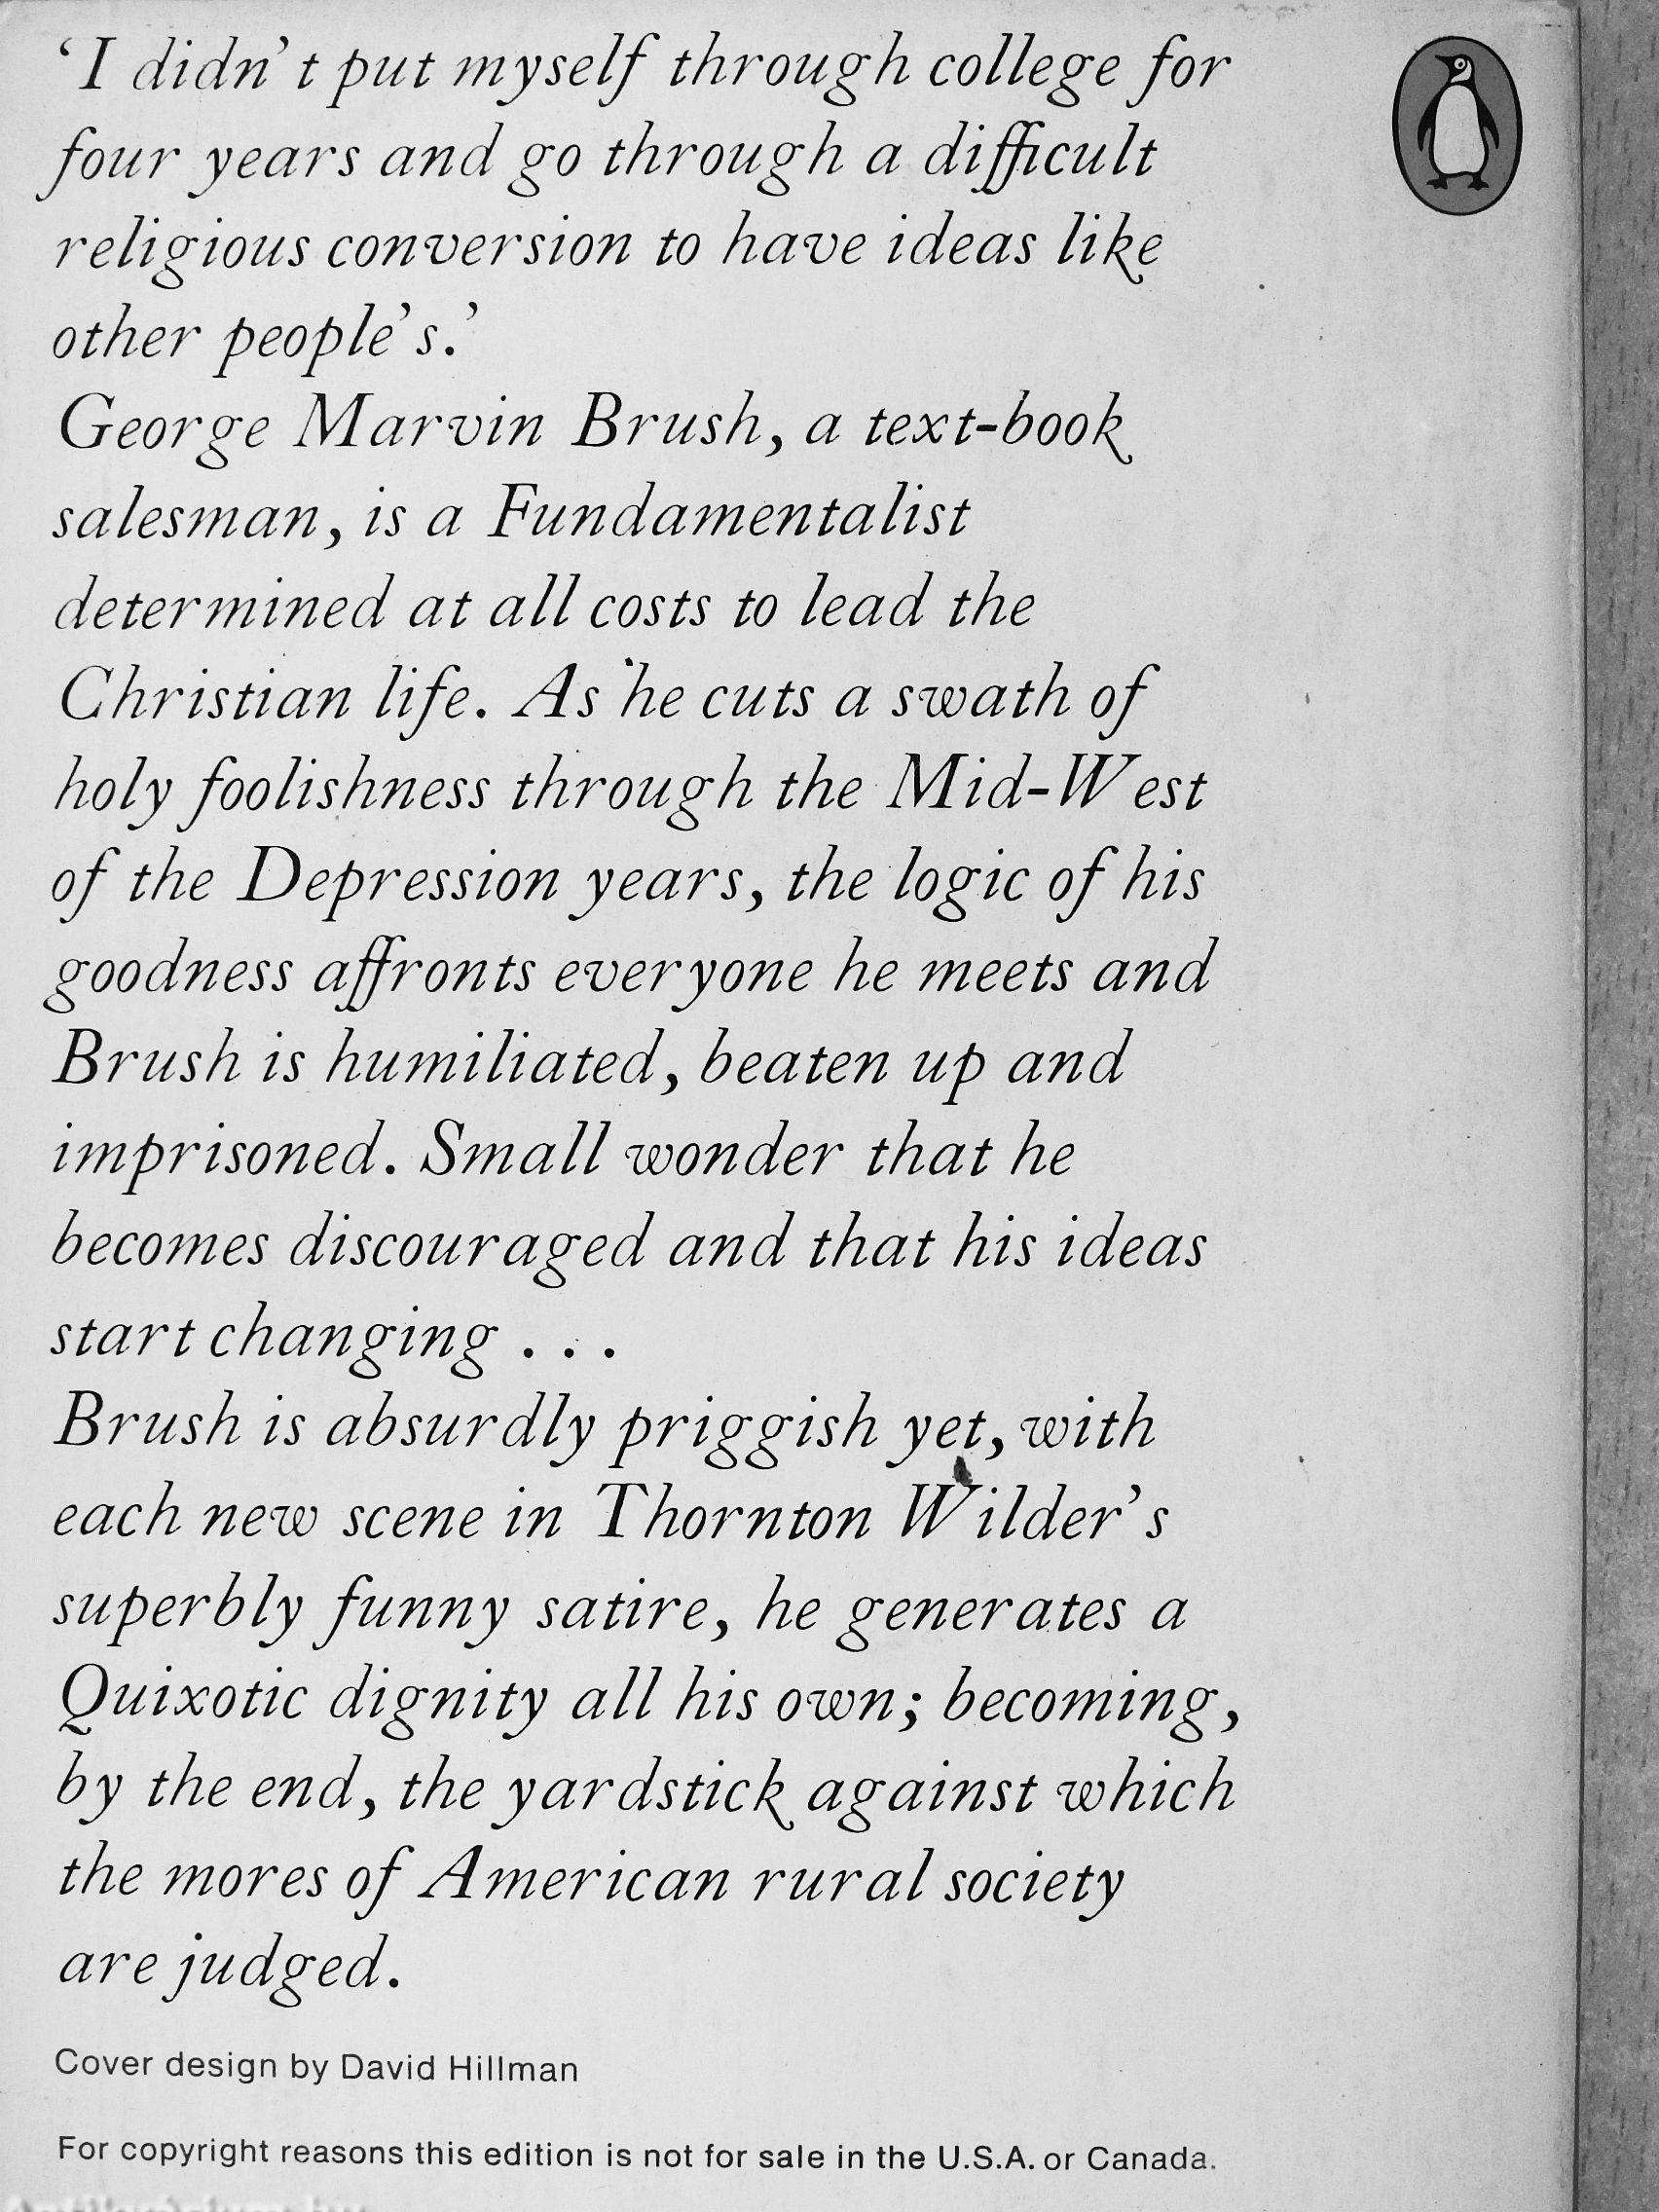 ‘I didn’t put myself through college for
four years and go through a difficult
religious conversion to have ideas like
other people’s.’
George Marvin Brush, a text-book
salesman, is a Fundamentalist
determined at all costs to lead the
Christian life. As he cuts a swath of
holy foolishness through the Mid-West
of the Depression years, the logic of his
goodness affronts everyone he meets and
Brush is humiliated, beaten up and
imprisoned. Small wonder that he
becomes discouraged and that his ideas
start changing . . .
Brush is absurdly priggish yet, with
each new scene in Thornton Wilder’s
superbly funny satire, he generates a
Quixotic dignity all his own; becoming,
by the end, the yardstick against which
the mores of American rural society
are judged.
Cover design by David Hillman
For copyright reasons this edition is not for sale in the U.S.A. or Canada.